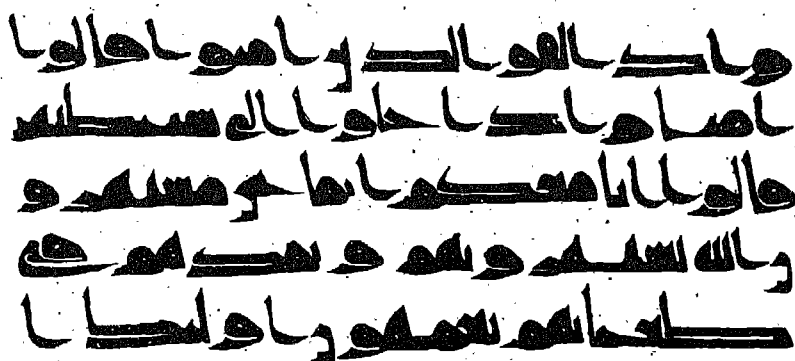 واذا لقوا الذين امنوا قالوا ا
منا واذا خلوا الى شيطينهم
قالوا انا معكم انما نحن مستهزو
ن الله يستهزئ بهم ويمدهم في
طغيانهم يعمهون اولئك ا